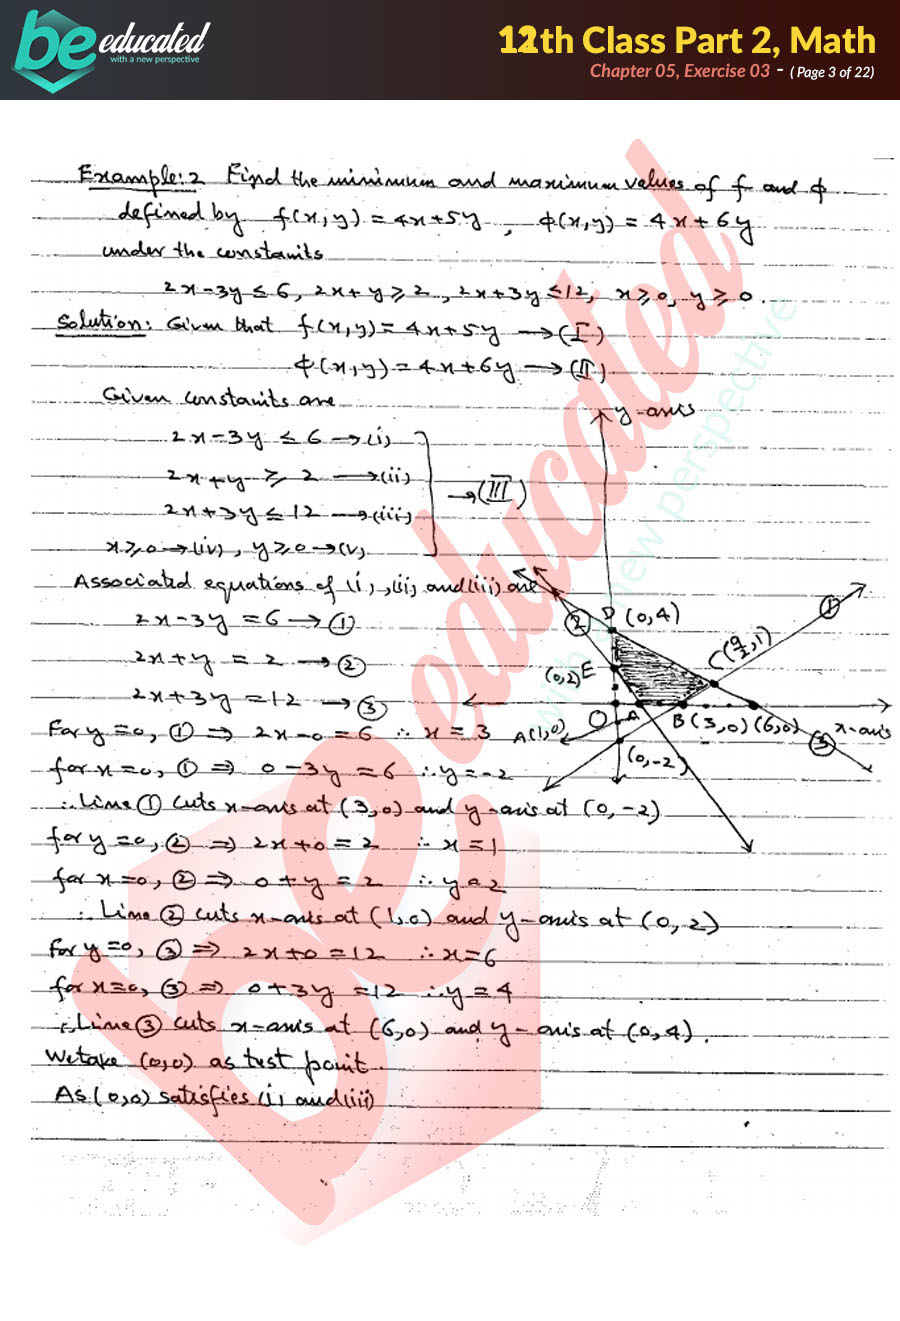 be educated
with a new perspective
12th Class Part 2, Math
Chapter 05, Exercise 03 - ( Page 3 of 22)
Example:2 Find the minimum and maximum values of f and ϕ
defined by f(x,y) = 4x+5y , ϕ(x,y) = 4x+6y
under the constaints
2x-3y ≤ 6, 2x+y ≥ 2, 2x+3y ≤ 12, x ≥ 0, y ≥ 0.
Solution: Given that f(x,y) = 4x+5y → (I)
ϕ(x,y) = 4x+6y → (II)
Given constaints are
2x-3y ≤ 6 → (i)
2x+y ≥ 2 → (ii)
2x+3y ≤ 12 → (iii)
x ≥ 0 → (iv) , y ≥ 0 → (v)
→ (III)
Associated equations of (i), (ii) and (iii) are
2x-3y = 6 → ①
2x+y = 2 → ②
2x+3y = 12 → ③
y-axis
② D (0,4)
①
C(9/2,1)
(0,2) E
O A B (3,0) (6,0) x-axis
A(1,0)
③
(0,-2)
For y=0, ① ⇒ 2x-0=6 ∴ x = 3
for x=0, ① ⇒ 0-3y = 6 ∴ y=-2
∴ Line ① cuts x-axis at (3,0) and y-axis at (0,-2)
for y=0, ② ⇒ 2x+0 = 2 ∴ x = 1
for x=0, ② ⇒ 0+y = 2 ∴ y=2
∴ Line ② cuts x-axis at (1,0) and y-axis at (0,2)
For y=0, ③ ⇒ 2x+0=12 ∴ x=6
for x=0, ③ ⇒ 0+3y =12 ∴ y=4
∴ Line ③ cuts x-axis at (6,0) and y-axis at (0,4).
We take (0,0) as test point.
As (0,0) satisfies (i) and (iii)
be educated
with a new perspective